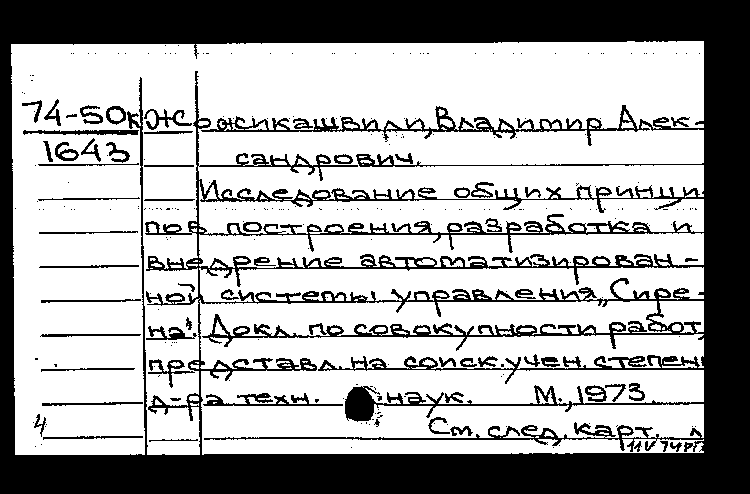 74-50к Жожикашвили, Владимир Алек-
1643 сандрович.
Исследование общих принци-
пов построения, разработка и
внедрение автоматизирован-
ной системы управления „Сире-
на". Докл. по совокупности работ,
представл. на соиск. учен. степени
д-ра техн. наук. М., 1973.
4 См. след. карт.